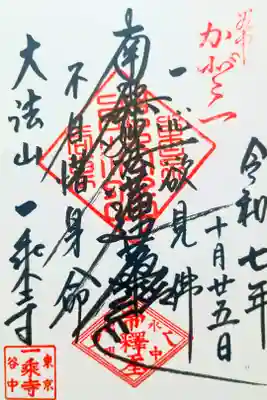 令和七年
十月廿五日
一心欲見佛
南無妙法蓮華経
不自惜身命
大法山 一乗寺
東京
一乗寺
谷中